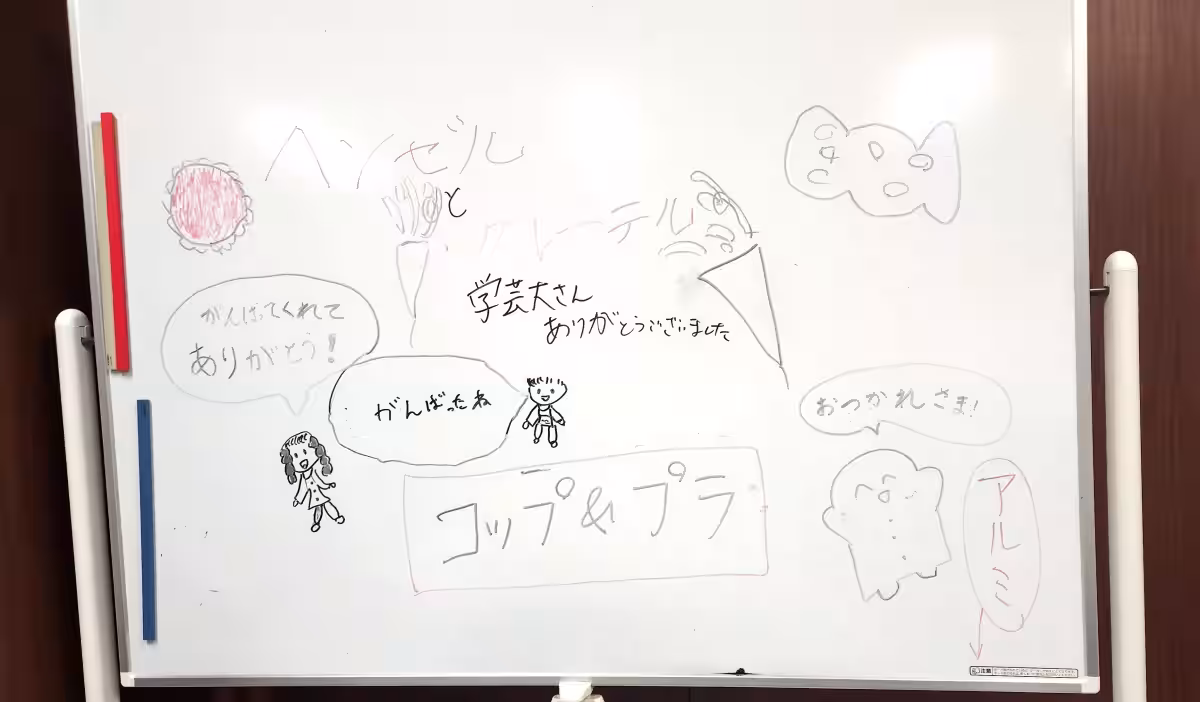 ヘンゼル
と
グレーテル
学芸大さん
ありがとうございました
がんばってくれて
ありがとう!
がんばったね
おつかれさま!
コップ&プラ
アルミ